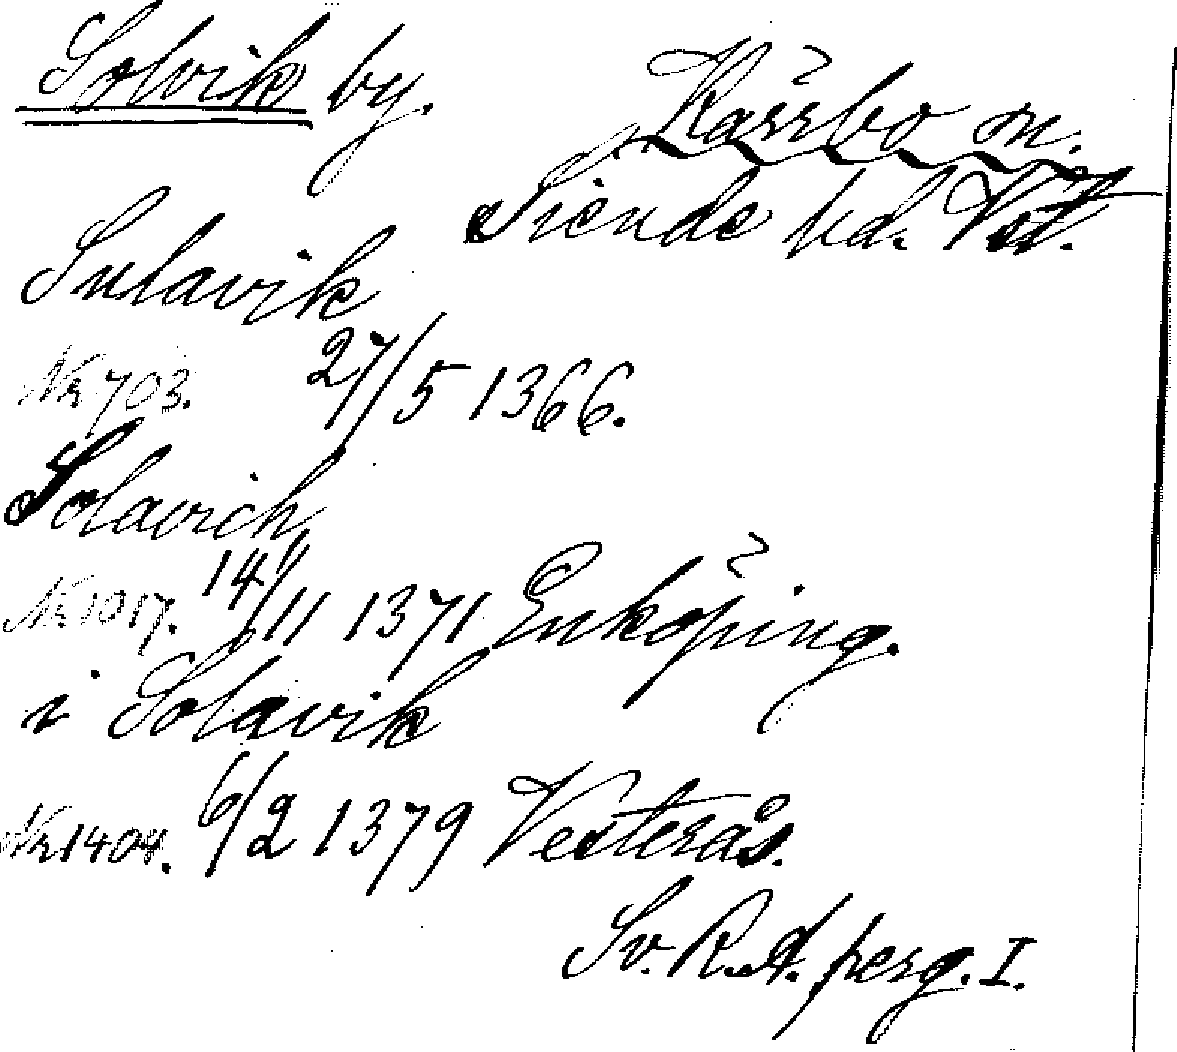 Solvik by.
Kärrbo sn.
Siende hd. Vstl.
Sulavik
Nr 703. 27/5 1366.
Solavich
Nr 1017. 14/11 1371 Enköping.
i Solavik
Nr 1404. 6/2 1379 Vesterås.
Sv. R. A. perg. I.